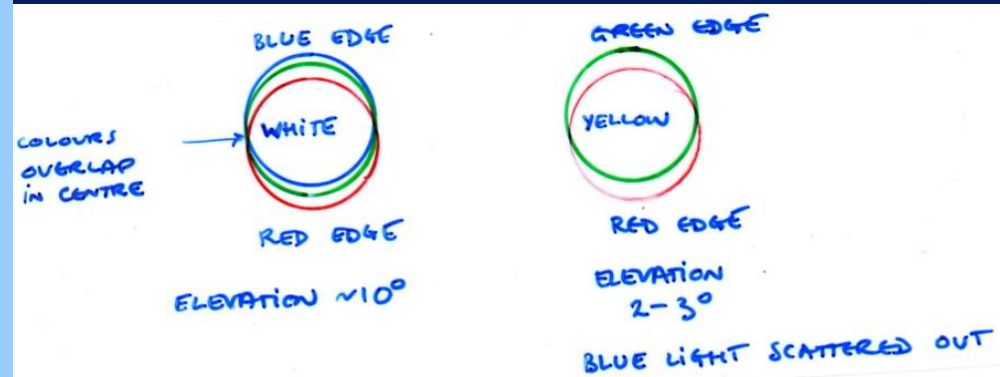 BLUE EDGE
COLOURS
OVERLAP
IN CENTRE
WHITE
RED EDGE
ELEVATION ~10°
GREEN EDGE
YELLOW
RED EDGE
ELEVATION
2-3°
BLUE LIGHT SCATTERED OUT